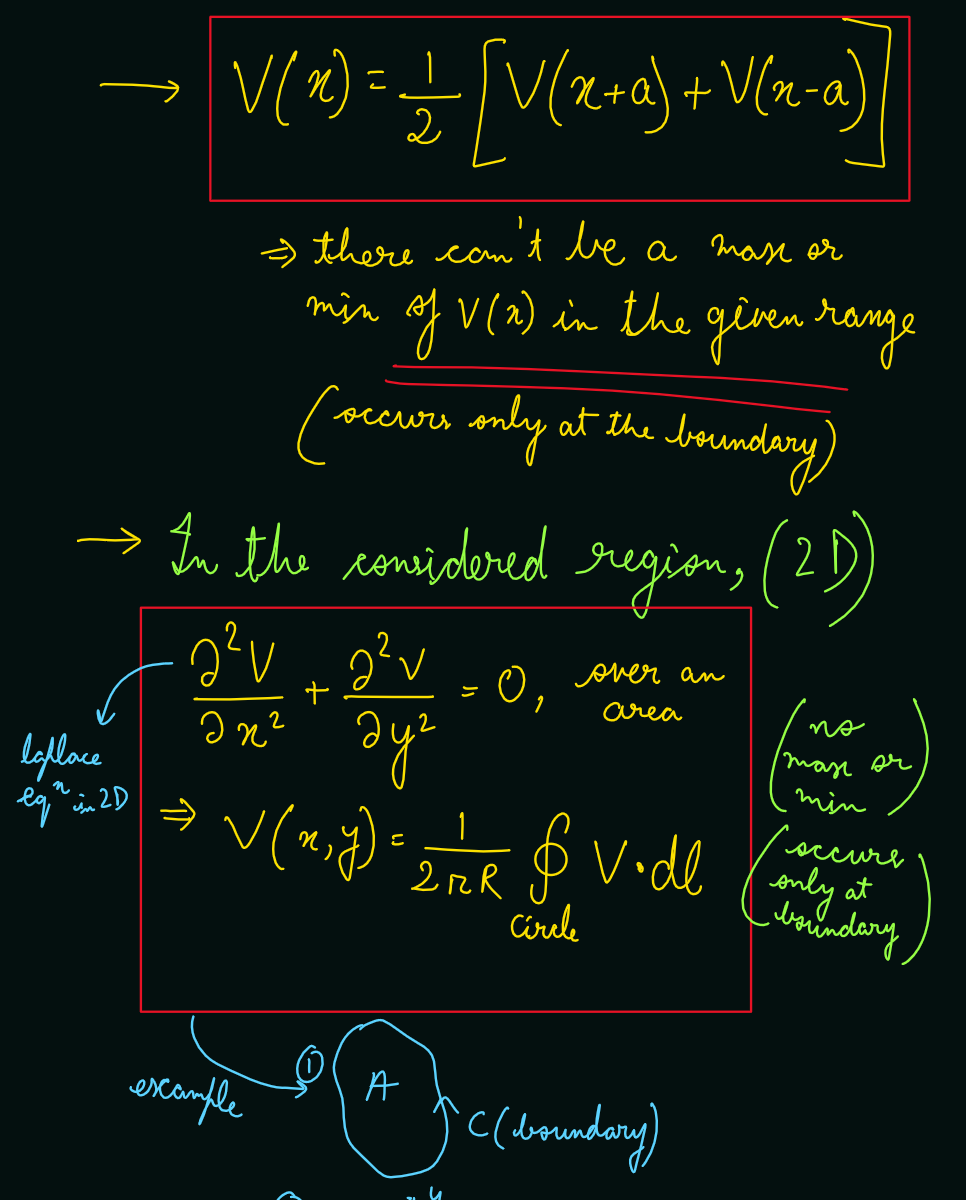 → V(x) = 1/2 [V(x+a) + V(x-a)]
⇒ there can't be a max or
min of V(x) in the given range
(occurs only at the boundary)
→ In the considered region, (2D)
∂²V/∂x² + ∂²V/∂y² = 0, over an
area
laplace
eqⁿ in 2D
⇒ V(x,y) = 1/2πR ∮ V·dl
circle
(no
max or
min)
(occurs
only at
boundary)
example
① A
C(boundary)